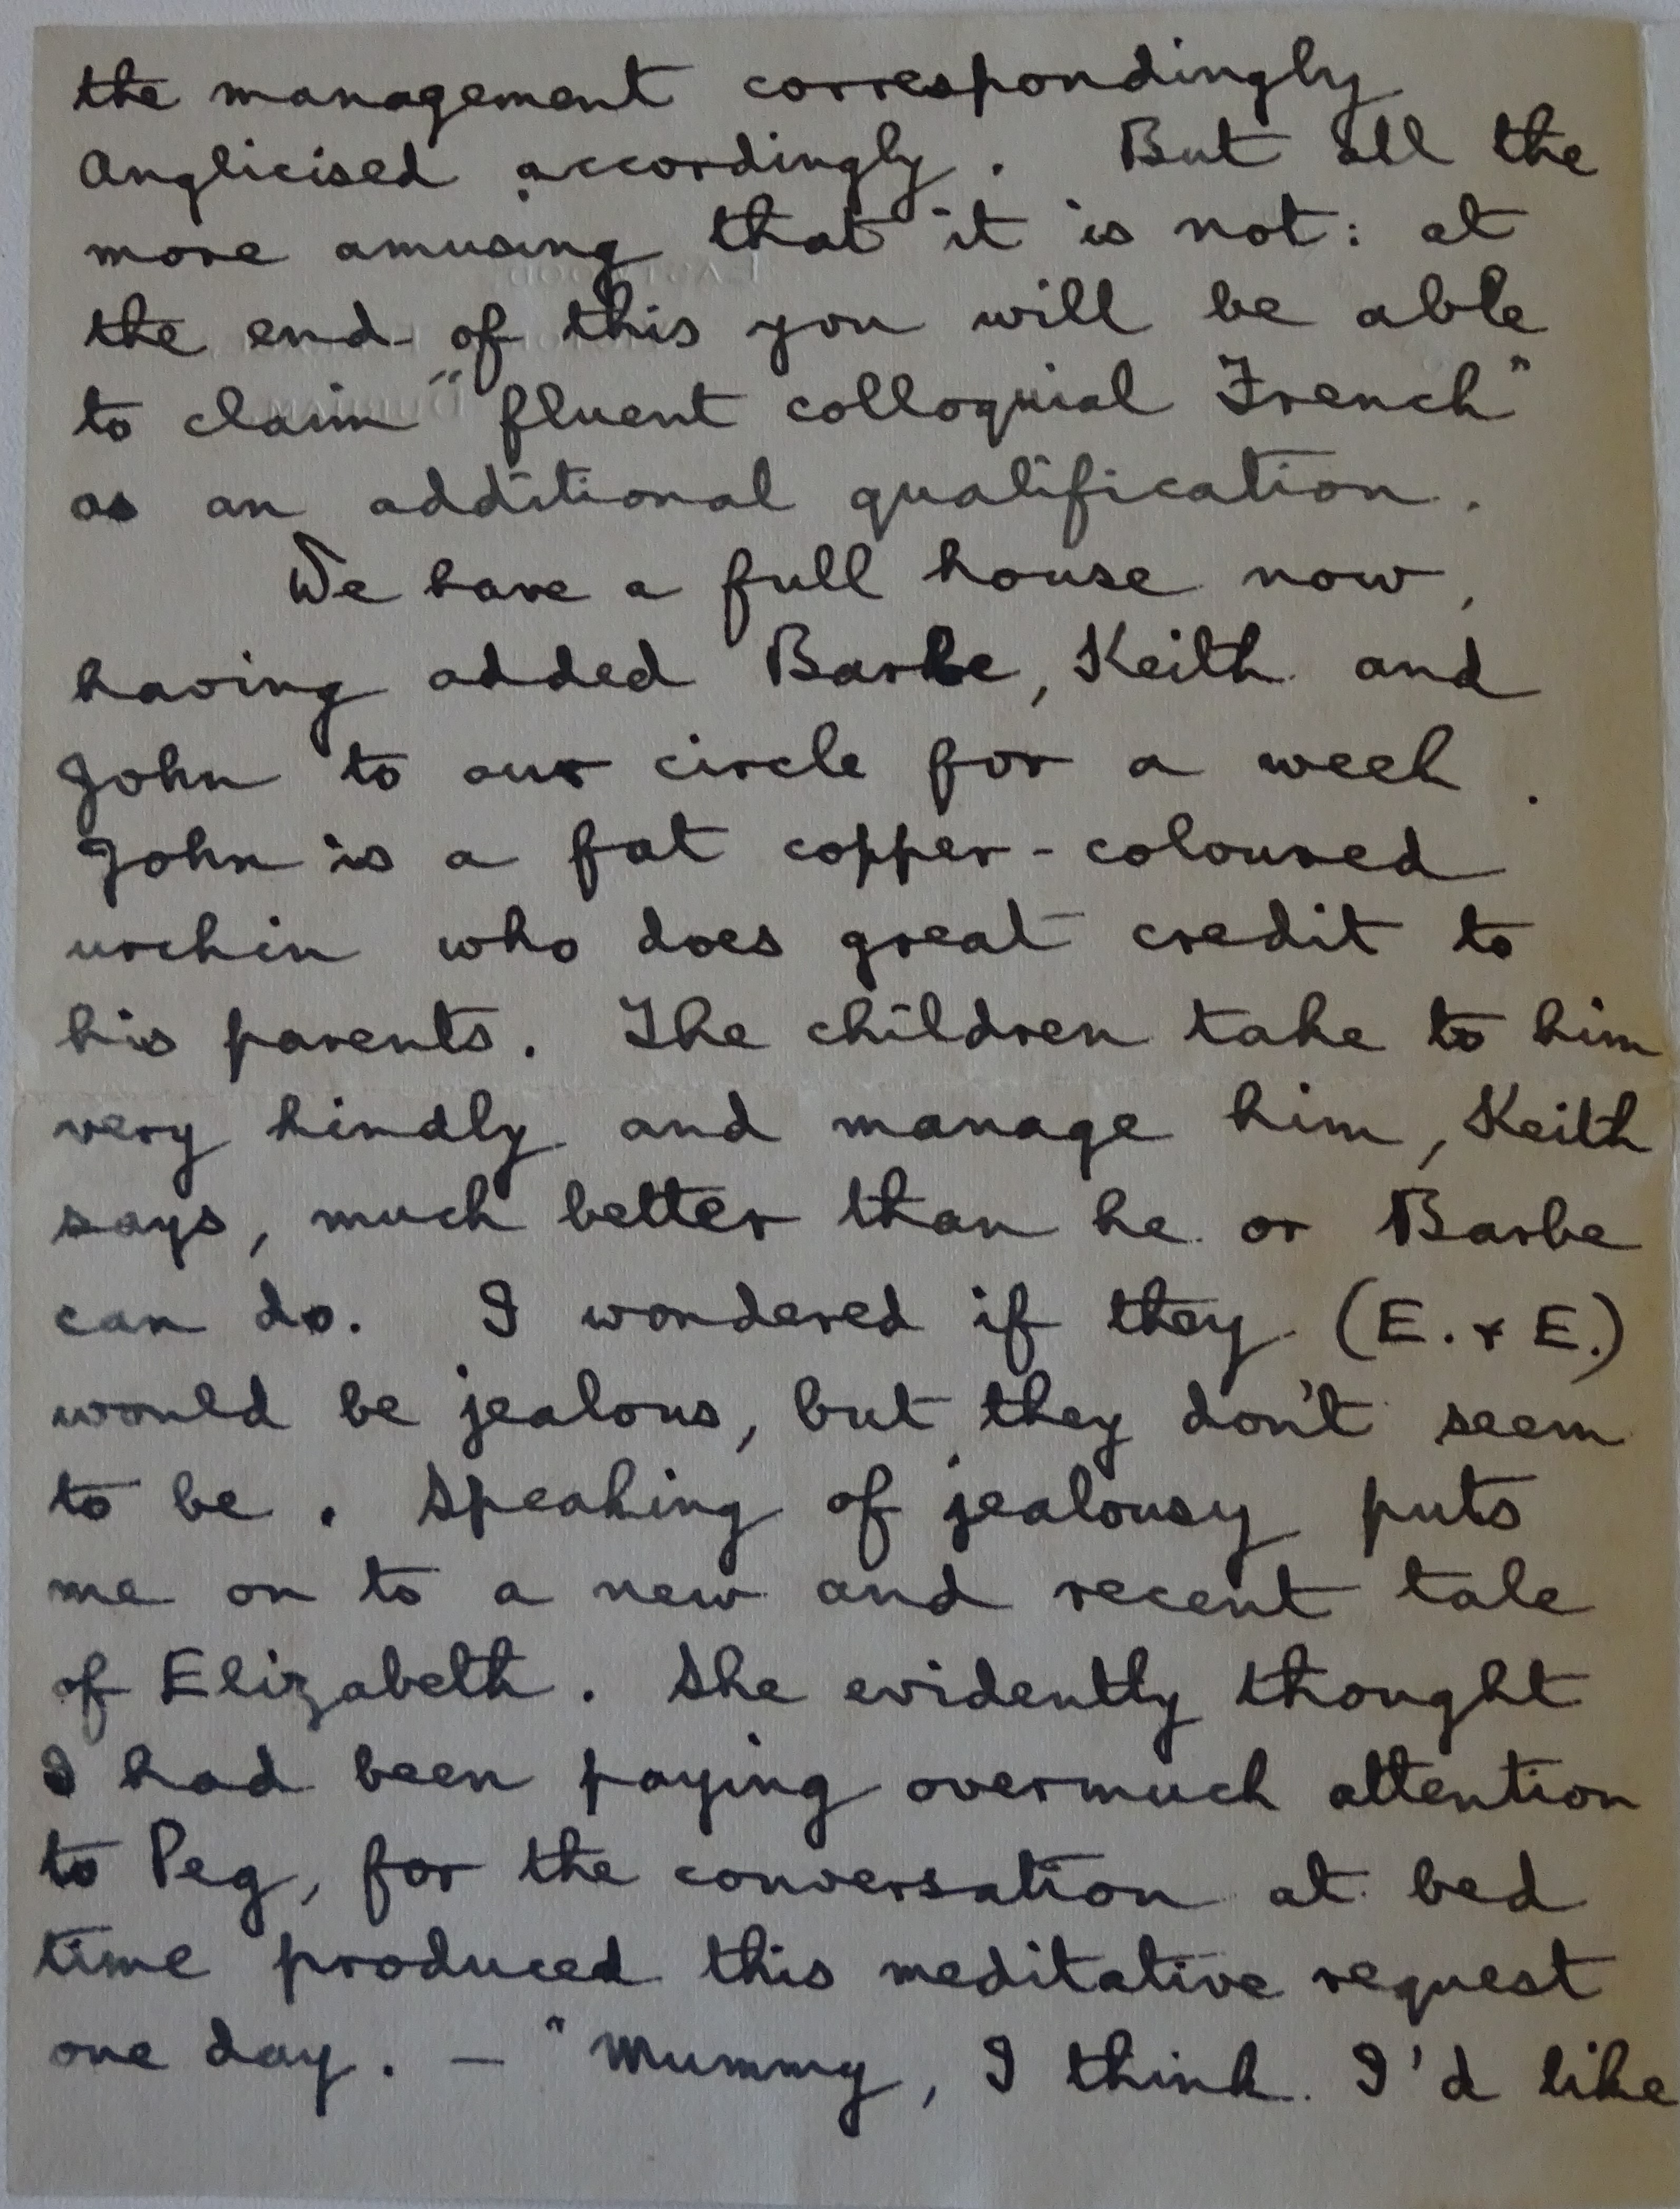 the management correspondingly
Anglicised accordingly. But all the
more amusing that it is not: at
the end of this you will be able
to claim "fluent colloquial French"
as an additional qualification.
We have a full house now,
having added Barbe, Keith and
John to our circle for a week.
John is a fat copper-coloured
urchin who does great credit to
his parents. The children take to him
very kindly and manage him, Keith
says, much better than he or Barbe
can do. I wondered if they (E. & E.)
would be jealous, but they don't seem
to be. Speaking of jealousy puts
me on to a new and recent tale
of Elizabeth. She evidently thought
I had been paying overmuch attention
to Peg, for the conversation at bed
time produced this meditative request
one day. — "Mummy, I think I'd like